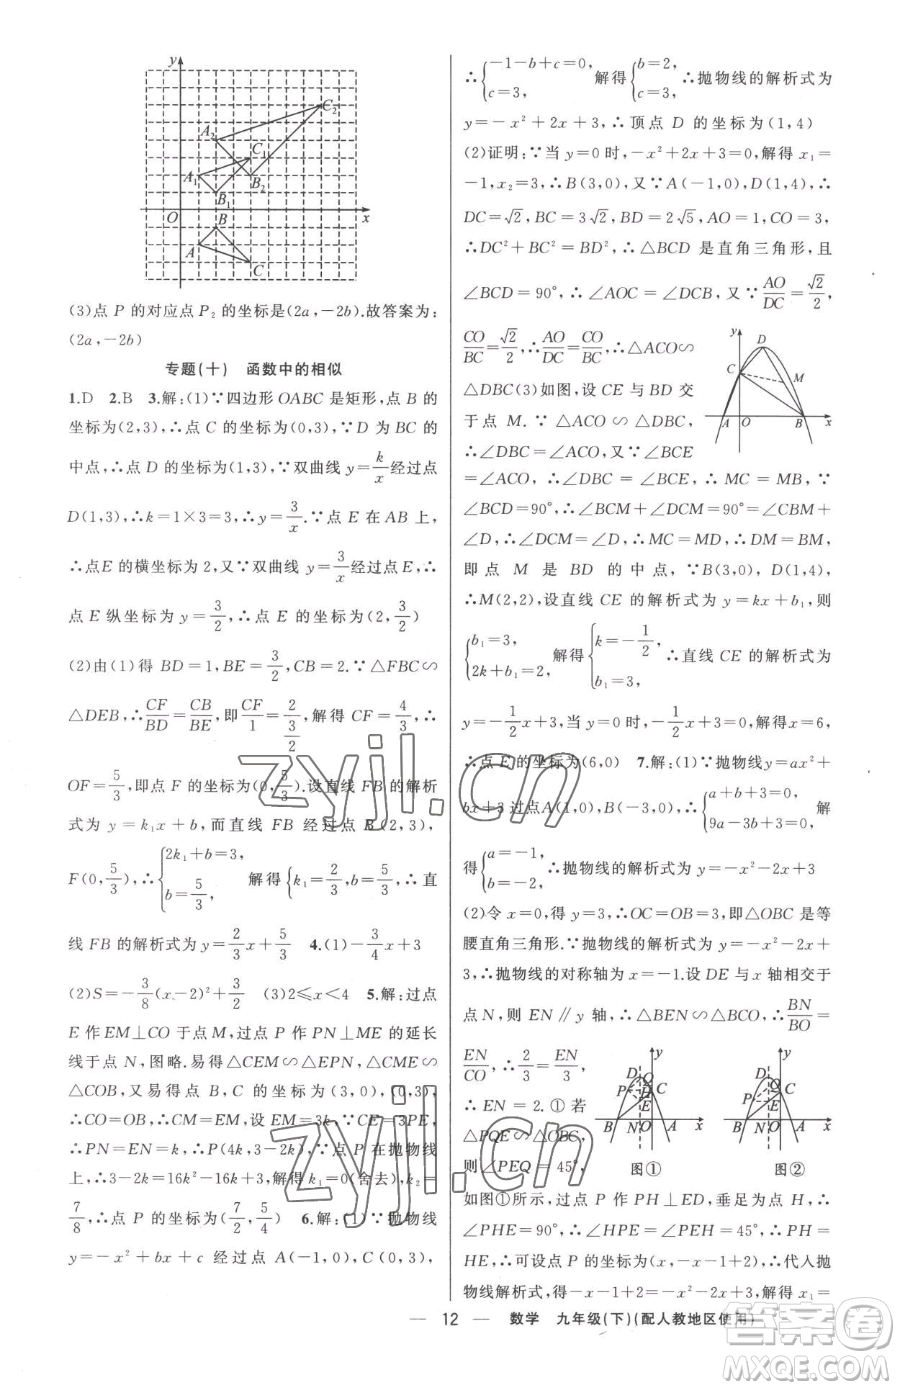 y
A₂
C₂
A₁
C₁
B₂
B₁
O
x
B
A
C
(3)点 P 的对应点 P₂ 的坐标是(2a,-2b).故答案为:
(2a,-2b)
专题(十) 函数中的相似
1.D 2.B 3.解:(1)∵四边形 OABC 是矩形,点 B 的
坐标为(2,3),∴点 C 的坐标为(0,3),∵D 为 BC 的
中点,∴点 D 的坐标为(1,3),∵双曲线 y=k/x 经过点
D(1,3),∴k=1×3=3,∴y=3/x.∵点 E 在 AB 上,
∴点E 的横坐标为 2,又∵双曲线 y=3/x 经过点 E,∴
点 E 纵坐标为 y=3/2,∴点 E 的坐标为(2,3/2)
(2)由(1)得 BD=1,BE=3/2,CB=2.∵△FBC∽
△DEB,∴CF/BD=CB/BE,即CF/1=2/(3/2),解得 CF=4/3,∴
OF=5/3,即点 F 的坐标为(0,5/3).设直线 FB 的解析
式为 y=k₁x+b,而直线 FB 经过点 B(2,3),
F(0,5/3),∴{2k₁+b=3, b=5/3, 解得{k₁=2/3,b=5/3,∴直
线 FB 的解析式为 y=2/3x+5/3 4.(1)-3/4+3
(2)S=-3/8(x-2)²+3/2 (3)2≤x<4 5.解:过点
E 作 EM⊥CO 于点 M,过点 P 作 PN⊥ME 的延长
线于点 N,图略.易得△CEM∽△EPN,△CME∽
△COB,又易得点 B,C 的坐标为(3,0),(0,3),
∴CO=OB,∴EM=CM,设 EM=3k,∵CE=3PE,
∴PN=EN=k,∴P(4k,3-2k),∵点 P 在抛物线
上,∴3-2k=16k-16k²+3,解得 k₁=0(舍去),k₂=
7/8,∴点 P 的坐标为(7/2,5/4) 6.解:(1)∵抛物线
y=-x²+bx+c 经过点 A(-1,0),C(0,3),
∴{-1-b+c=0, c=3, 解得{b=2, c=3, ∴抛物线的解析式为
y=-x²+2x+3,∴顶点 D 的坐标为(1,4)
(2)证明:∵当 y=0时,-x²+2x+3=0,解得 x₁=
-1,x₂=3,∴B(3,0),又∵A(-1,0),D(1,4),∴
DC=√2,BC=3√2,BD=2√5,AO=1,CO=3,
∴DC²+BC²=BD²,∴△BCD 是直角三角形,且
∠BCD=90°,∴∠AOC=∠DCB,又∵AO/DC=√2/2,
CO/BC=√2/2,∴AO/DC=CO/BC,∴△ACO∽
△DBC(3)如图,设 CE 与 BD 交
于点 M.∵△ACO∽△DBC,
∴∠DBC=∠ACO,又∵∠BCE
=∠ACO,∴∠DBC=∠BCE,∴MC=MB,∵
∠BCD=90°,∴∠BCM+∠DCM=90°=∠CBM+
∠D,∴∠DCM=∠D,∴MC=MD,∴DM=BM,
即点 M 是 BD 的中点,∵B(3,0),D(1,4),
∴M(2,2),设直线 CE 的解析式为 y=kx+b₁,则
{b₁=3, 2k+b₁=2, 解得{k=-1/2 b₁=3, ∴直线 CE 的解析式为
y=-1/2x+3,当 y=0时,-1/2x+3=0,解得 x=6,
∴点 E 的坐标为(6,0) 7.解:(1)∵抛物线 y=ax²+
bx+3过点A(1,0),B(-3,0),∴{a+b+3=0, 9a-3b+3=0, 解
得{a=-1, b=-2, ∴抛物线的解析式为 y=-x²-2x+3
(2)令 x=0,得 y=3,∴OC=OB=3,即△OBC是等
腰直角三角形.∵抛物线的解析式为 y=-x²-2x+
3,∴抛物线的对称轴为 x=-1.设 DE 与 x 轴相交于
点 N,则 EN∥y 轴,∴△BEN∽△BCO,∴BN/BO=
EN/CO,∴2/3=EN/3,
∴EN=2.①若
△PQE∽△OBC,
则∠PEQ=45°,
y
D
C
M
A
O
B
x
图①
图②
如图①所示,过点 P 作 PH⊥ED,垂足为点 H,∴
∠PHE=90°,∴∠HPE=∠PEH=45°,∴PH=
HE,∴可设点 P 的坐标为(x,-x-1+2),∴代人抛
物线解析式,得-x+1=-x²-2x+3,解得 x₁=
— 12 — 数学 九年级(下)(配人教地区使用)
zyjl.cn
zyjl.cn
答案圈
MXQE.COM